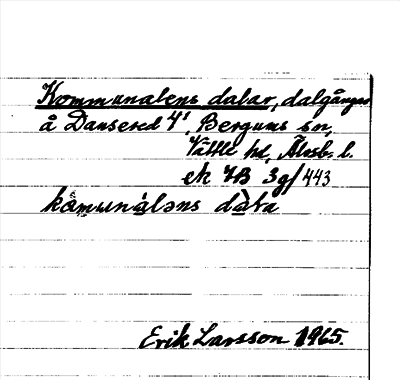 Kommunalens dalar, dalgångar
å Dansered 4¹, Bergums sn,
Vättle hd, Älvsb. l.
ek YB 3g/443
kåmunàləns dàta
Erik Larsson 1965.